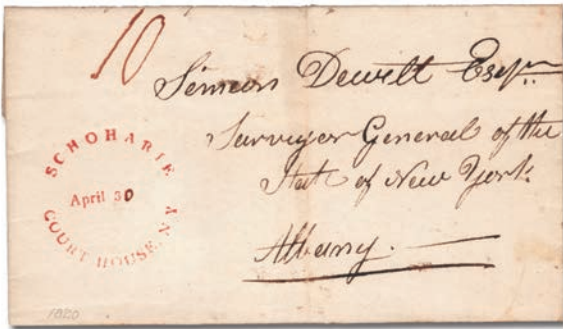 10
Simeon Dewitt Esqr
Surveyor General of the
State of New York
Albany.
SCHOHARIE
April 30
COURT HOUSE. N.Y
1820